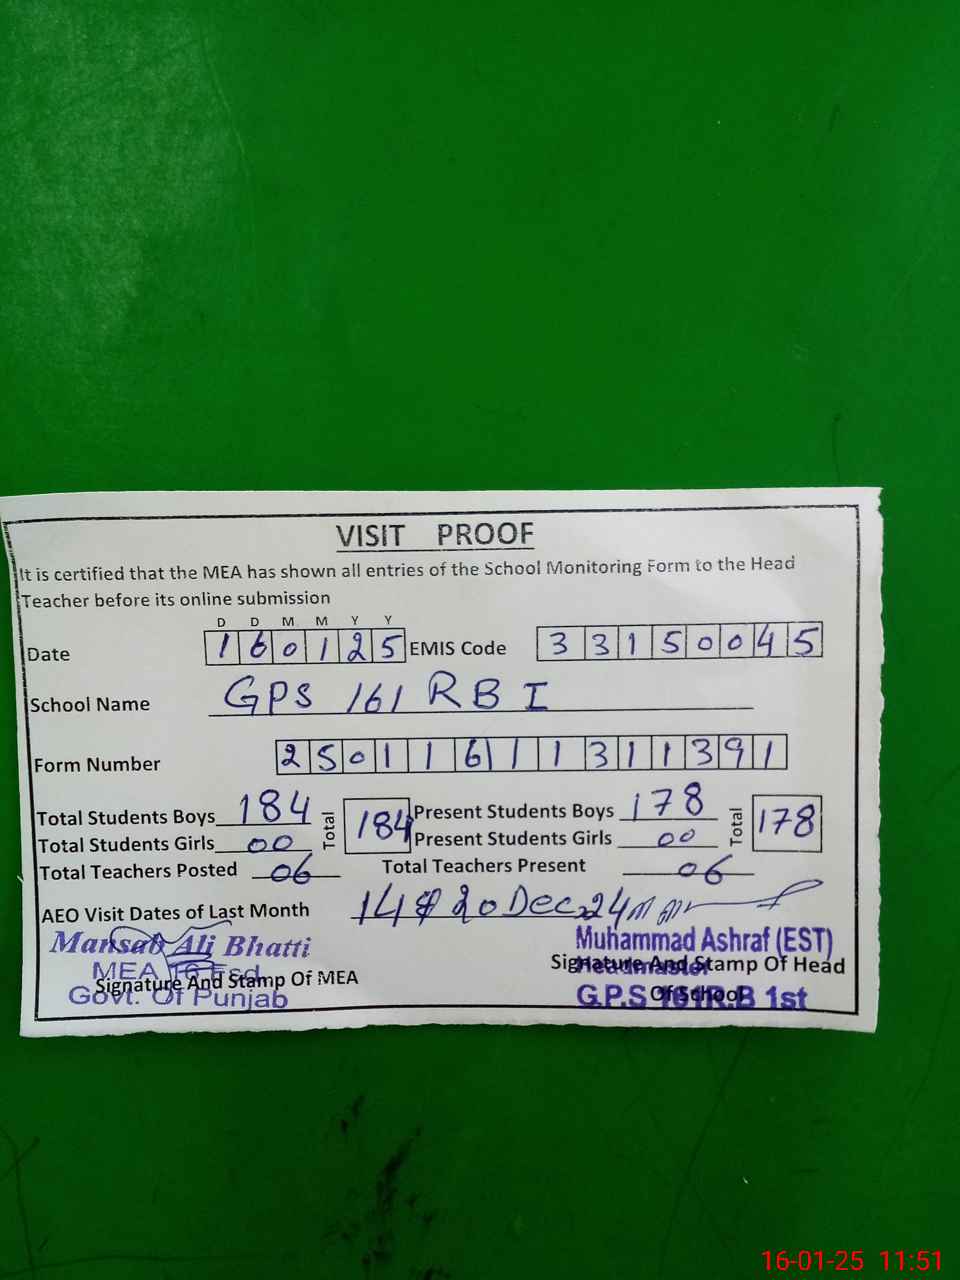 VISIT PROOF
It is certified that the MEA has shown all entries of the School Monitoring Form to the Head
Teacher before its online submission
D D M M Y Y
Date 160125 EMIS Code 33150045
School Name GPS 161 RB I
Form Number 25011611311391
Total Students Boys 184 Total 184 Present Students Boys 178 Total 178
Total Students Girls 00 Present Students Girls 00
Total Teachers Posted 06 Total Teachers Present 06
AEO Visit Dates of Last Month 14 & 20 Dec, 24
Mansab Ali Bhatti Muhammad Ashraf (EST)
MEA 16 Fsd Headmaster
Signature And Stamp Of MEA Signature And Stamp Of Head
Govt. Of Punjab G.P.S 161R.B 1st
Of School
16-01-25 11:51